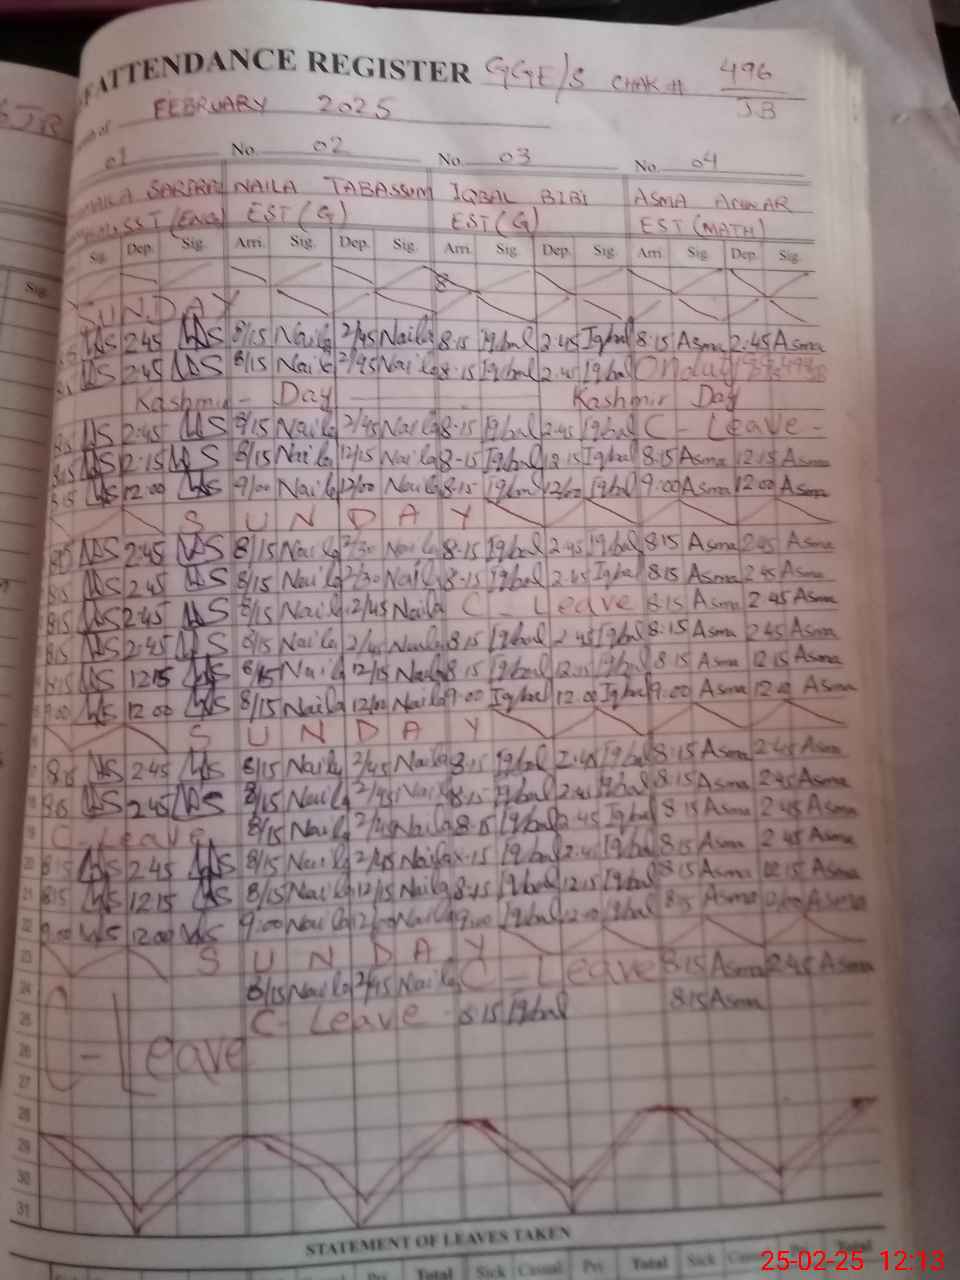 ATTENDANCE REGISTER GGE/S CHAK # 496
J.B
FEBRUARY 2025
01 No. 02 No. 03 No. 04
NAILA TABASSUM IQBAL BIBI ASMA
SST (ENG) EST (G) EST (G) EST (MATH)
Sig. Dep. Sig. Arri. Sig. Dep. Sig. Arri. Sig. Dep. Sig. Arri. Sig. Dep. Sig.
8
SUNDAY
2:45 8/15 Naila 2/45 Naila 8-15 Iqbal 2:45 Iqbal 8:15 Asma 2:45 Asma
2:45 8/15 Naila 2/45 Naila 8-15 Iqbal 2:45 Iqbal On duty
Kashmir - Day Kashmir Day
8:15 2:45 8/15 Naila 2/45 Naila 8-15 Iqbal 2:45 Iqbal C - Leave -
8:15 12:15 8/15 Naila 12/15 Naila 8-15 Iqbal 12:15 Iqbal 8:15 Asma 12:15 Asma
8:15 12:00 9/00 Naila 12/00 Naila 8-15 Iqbal 12/00 Iqbal 9:00 Asma 12:00 Asma
SUNDAY
8:15 2:45 8/15 Naila 2/30 Naila 8-15 Iqbal 2:45 Iqbal 8:15 Asma 2:45 Asma
8:15 2:45 8/15 Naila 2/30 Naila 8-15 Iqbal 2:45 Iqbal 8:15 Asma 2:45 Asma
8:15 2:45 8/15 Naila 2/45 Naila C - Leave 8:15 Asma 2:45 Asma
8:15 2:45 8/15 Naila 2/45 Naila 8:15 Iqbal 2:45 Iqbal 8:15 Asma 2:45 Asma
8:15 12:15 8/15 Naila 12/15 Naila 8:15 Iqbal 12:15 Iqbal 8:15 Asma 12:15 Asma
9:00 12:00 8/15 Naila 12/00 Naila 9:00 Iqbal 12:00 Iqbal 9:00 Asma 12:00 Asma
SUNDAY
17 8:15 2:45 8/15 Naila 2/45 Naila 8-15 Iqbal 2:45 Iqbal 8:15 Asma 2:45 Asma
18 8:15 2:45 8/15 Naila 2/45 Naila 8-15 Iqbal 2:45 Iqbal 8:15 Asma 2:45 Asma
19 C-Leave 8/15 Naila 2/45 Naila 8-15 Iqbal 2:45 Iqbal 8:15 Asma 2:45 Asma
20 8:15 2:45 8/15 Naila 2/45 Naila 8-15 Iqbal 2:45 Iqbal 8:15 Asma 2:45 Asma
21 8:15 12:15 8/15 Naila 12/15 Naila 8-15 Iqbal 12:15 Iqbal 8:15 Asma 12:15 Asma
22 9:00 12:00 9:00 Naila 12/00 Naila 9:00 Iqbal 12:00 Iqbal 8:15 Asma Asma
23 SUNDAY
24 8/15 Naila 2/45 Naila C - Leave 8:15 Asma 2:45 Asma
25 C - Leave 8:15 Iqbal 8:15 Asma
26 C-Leave
27
28
29
30
31
STATEMENT OF LEAVES TAKEN
Total Sick Casual Total Sick Total
25-02-25 12:13